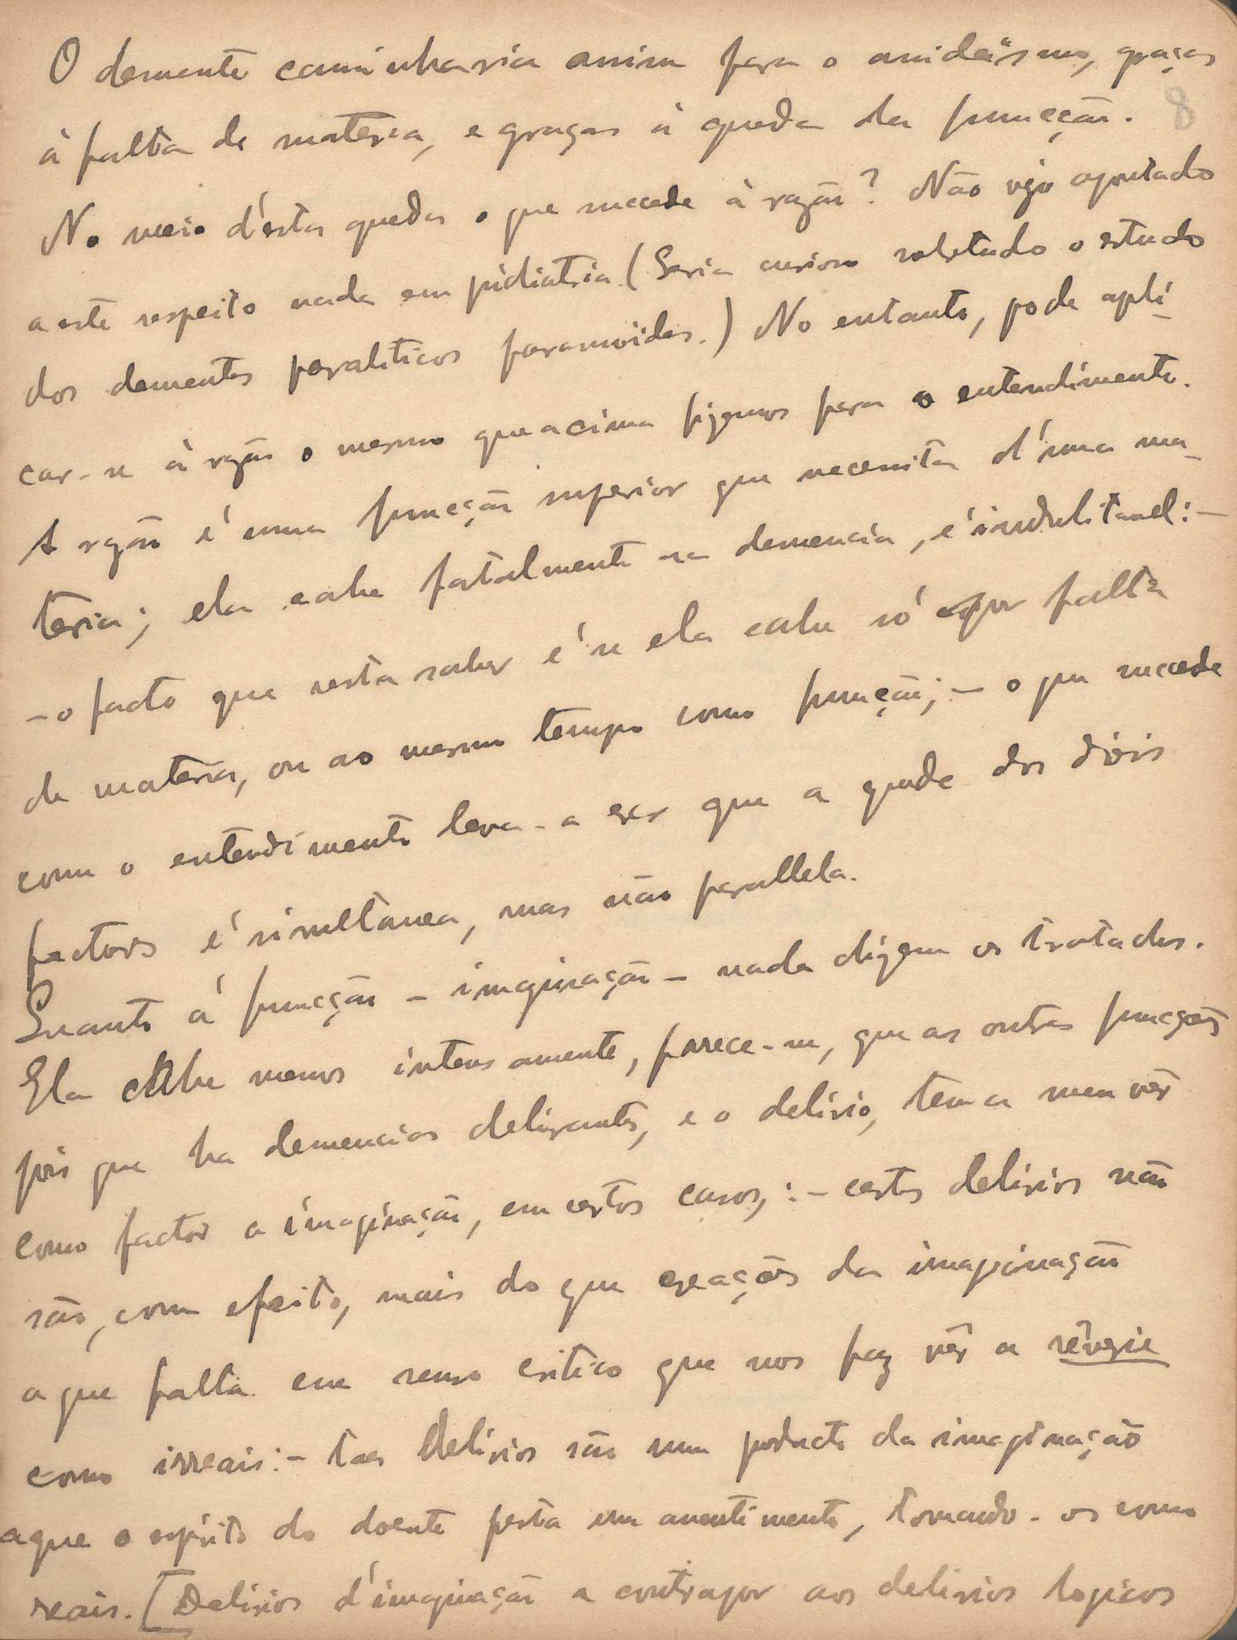 O demente caminharia assim para o anideismo, graças
8
à falta de materia, e graças à queda da funcção.
No meio d'estas quedas o que succede à razão? Não vejo apontado
a este respeito nada em psidiatria (Seria curioso sobretudo o estudo
dos dementes paraliticos paranoides.) No entanto, pode apli-
car-se à razão o mesmo que acima fizemos para o entendimento.
A razão é uma funcção superior que necessita d'uma ma-
teria; ela cahe fatalmente na demencia, é indubitavel: -
- o facto que resta saber é se ela cahe só por falta
de materia, ou ao mesmo tempo como funcção; - o que succede
com o entendimento leva-a crer que a queda dos dois
factores é simultanea, mas não parallela.
Quanto á funcção - imaginação - nada dizem os tratados.
Ela cahe menos intensamente, parece-me, que as outras funcções
pois que ha demencias delirantes, e o delirio, tem a meu vêr
como factor a imaginação, em certos casos; : - certos delirios não
são, com efeito, mais do que creações da imaginação
a que falta em senso critico que nos faz vêr a rêverie
como irreais: - taes delirios são um producto da imaginação
a que o espirito do doente presta um assentimento, tomando-os como
reais. [Delirios d'imaginação a contrapor aos delirios logicos